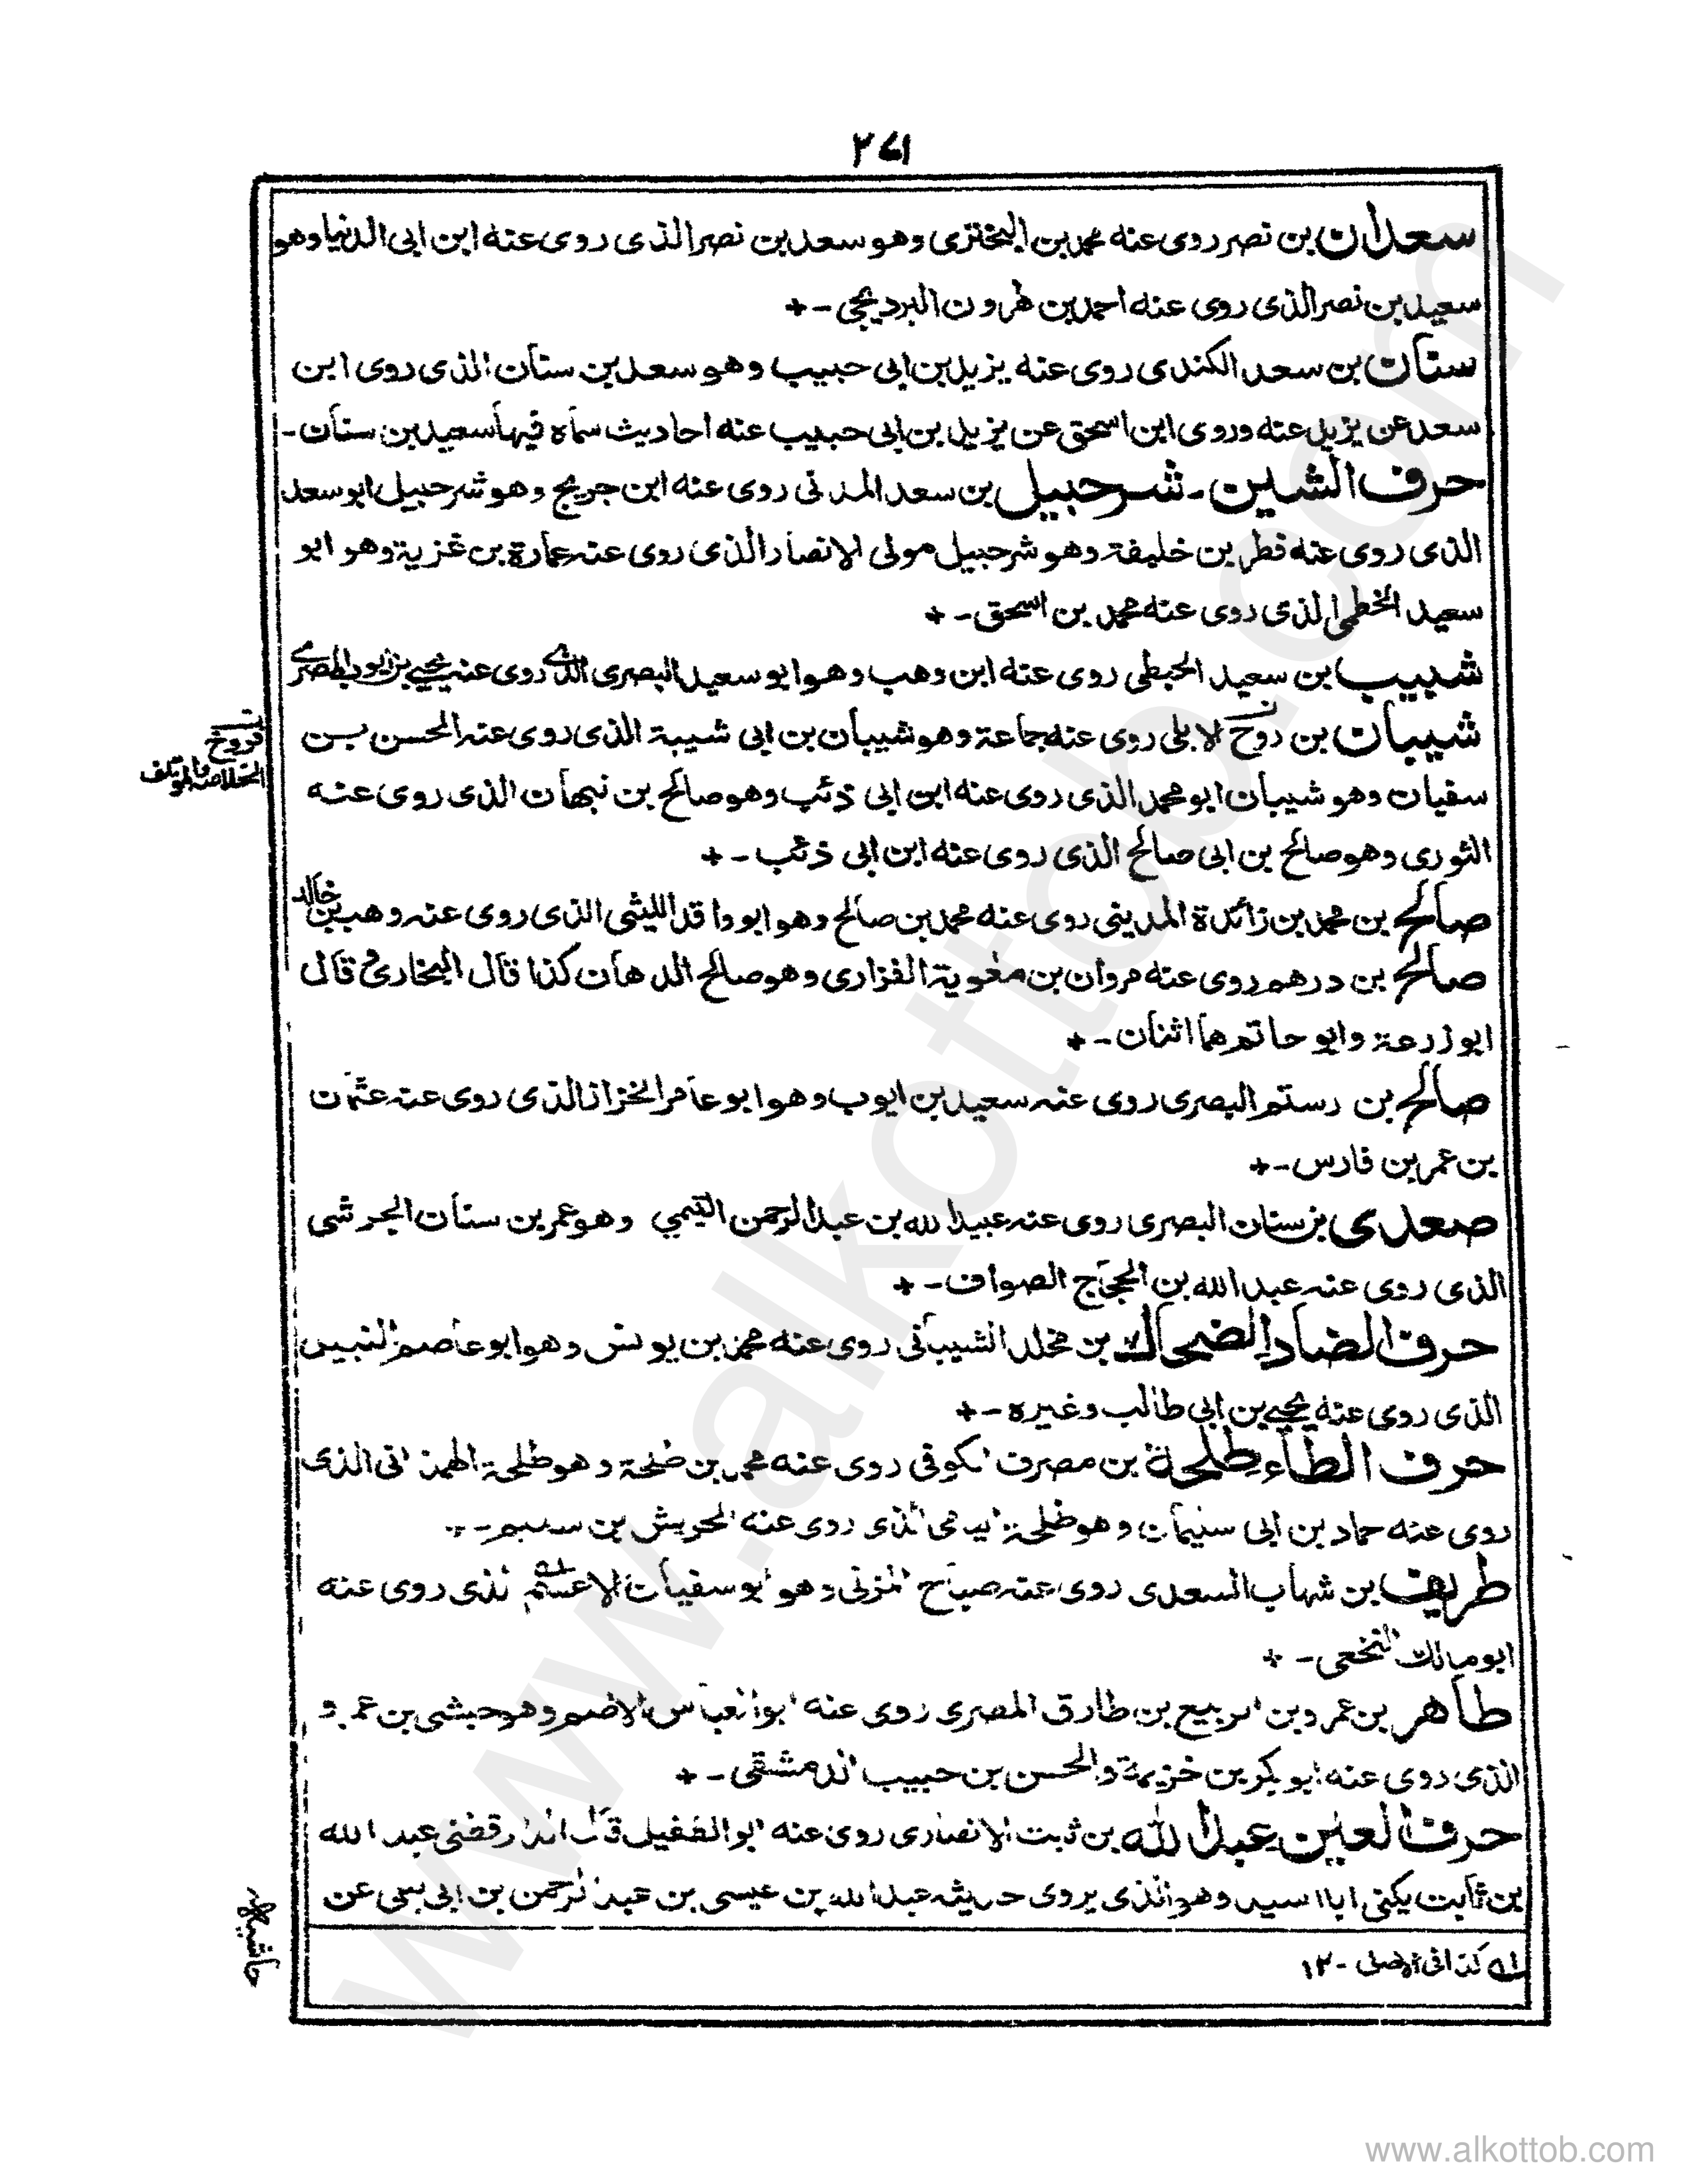 ٣٧١
سعدان بن نصر روى عنه محمد بن البختري وهو سعد بن نصر الذى روى عنه ابن ابى الدنيا وهو
سعيد بن نصر الذى روى عنه احمد بن هرون البرديجي -+
سنان بن سعد الكندى روى عنه يزيد بن ابى حبيب وهو سعد بن سنان الذى روى ابن
سعد عن يزيد عنه وروى ابن اسحق عن يزيد بن ابى حبيب عنه احاديث سماه فيها سعيد بن سنان -
حرف الشين - شرحبيل بن سعد المدنى روى عنه ابن جريج وهو شرحبيل ابو سعد
الذى روى عنه فطر بن خليفة وهو شرحبيل مولى الانصار الذى روى عنه عمارة بن غزية وهو ابو
سعيد الخطمى الذى روى عنه محمد بن اسحق -+
شبيب بن سعيد الحبطى روى عنه ابن وهب وهو ابو سعيد البصرى الذى روى عنه يحيى بن ايوب المصرى
شيبان بن روح الابلى روى عنه جماعة وهو شيبان بن ابى شيبة الذى روى عنه الحسن بن
فروخ
الخلاصة والمؤتلف
سفيان وهو شيبان ابو محمد الذى روى عنه ابن ابى ذئب وهو صالح بن نبهان الذى روى عنه
الثورى وهو صالح بن ابى صالح الذى روى عنه ابن ابى ذئب -+
صالح بن محمد بن زائدة المدينى روى عنه محمد بن صالح وهو ابو واقد الليثى الذى روى عنه وهب بن خالد
صالح بن درهم روى عنه مروان بن معوية الفزارى وهو صالح الدهان كذا قال البخارى وقال
ابو زرعة وابو حاتم هما اثنان -+
صالح بن رستم البصرى روى عنه سعيد بن ايوب وهو ابو عامر الخزاز الذى روى عنه عثمان
بن عمر بن فارس -+
صعدى بن سنان البصرى روى عنه عبيد الله بن عبد الرحمن التيمي وهو عمر بن سنان الجرشى
الذى روى عنه عبد الله بن الحجاج الصواف -+
حرف الضاد الضحاك بن مخلد الشيبانى روى عنه محمد بن يونس وهو ابو عاصم النبيل
الذى روى عنه يحيى بن ابى طالب وغيره -+
حرف الطاء طلحة بن مصرف الكوفى روى عنه محمد بن طلحة وهو طلحة الهمدانى الذى
روى عنه حماد بن ابى سليمان وهو طلحة اليامى الذى روى عنه الحريش بن سليم -+
طريف بن شهاب السعدى روى عنه صباح المزنى وهو ابو سفيان الاعسم الذى روى عنه
ابو مالك النخعى -+
طاهر بن عمرو بن الربيع بن طارق المصرى روى عنه ابو العباس الاصم وهو حبشى بن عمرو
الذى روى عنه ابو بكر بن خزيمة والحسن بن حبيب الدمشقى -+
حرف العين عبد الله بن ثابت الانصارى روى عنه ابو الطفيل قال الدارقطنى عبد الله
بن ثابت يكنى ابا اسيد وهو الذى يروى حديثه عبد الله بن عيسى بن عبد الرحمن بن ابى ليلى عن
حاشية
له كذا فى الاصل - ١٢
www.alkottob.com
www.alkottob.com